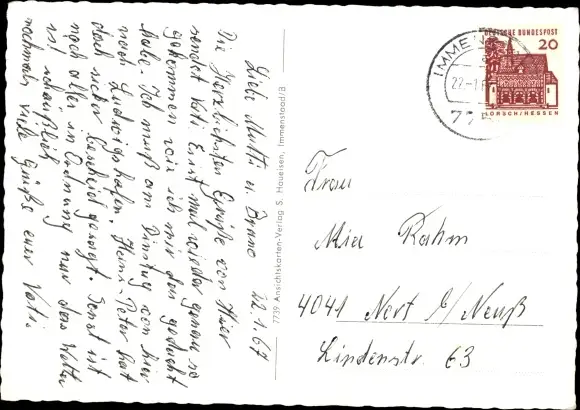 22.1.67
Liebe Mutti u.
Die Herzlichsten Grüße von Hier
sendet Vati. Erst mal wieder genau so
gekommen wie ich mir das gedacht
habe. Ich muß am Dienstag von hier
nach Ludwigshafen. Heinz-Peter hat
doch sicher bescheid gesagt. Sonst ist
noch alles in Ordnung nur das Wetter
ist scheußlich
nochmals viele Grüße euer Vati.
7759 Ansichtskarten-Verlag S. Haueisen, Immenstaad/B
DEUTSCHE BUNDESPOST
20
LORSCH/HESSEN
IMMEN
22.-1.
775
Frau
Mia Rahm
4041 Nert b/Neuß
Lindenstr. 63